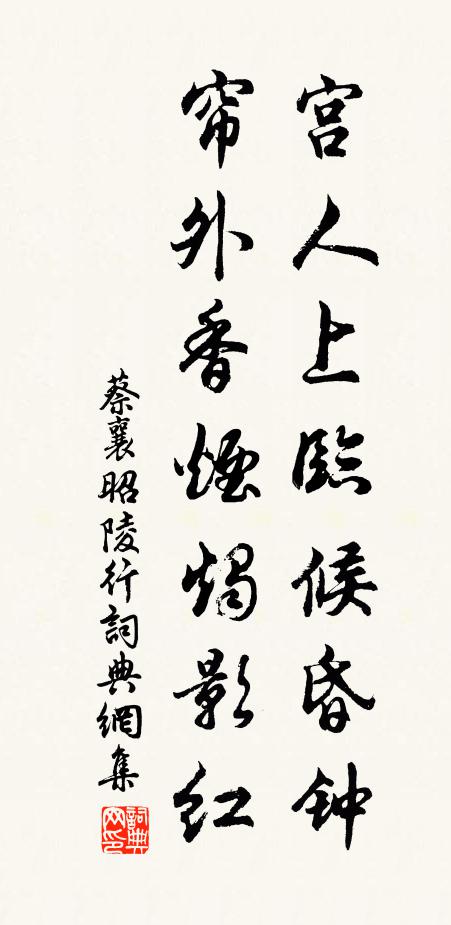 宫人上臨候昏钟
帘外香煙燭影红
蔡襄昭陵行詞典網集
詞典网印